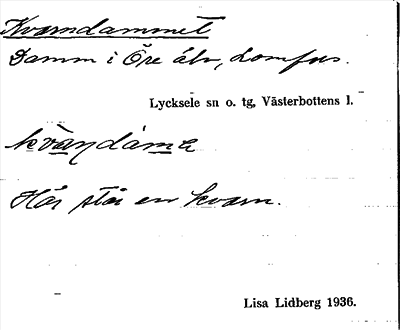 Kvarndammet
Damm i Öre älv, Lomfors.
Lycksele sn o. tg, Västerbottens l.
Här står en kvarn.
Lisa Lidberg 1936.